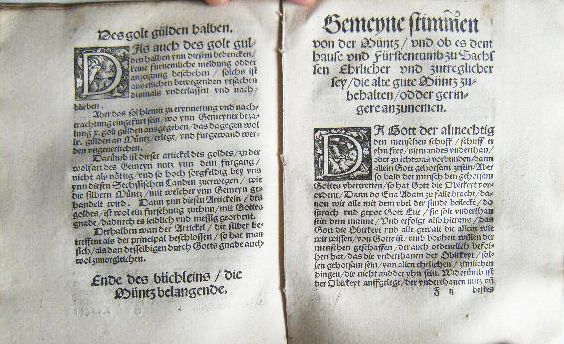 Des golt gülden halben.
DAs auch des golt gül-
den halben ynn diesem bedencken/
keine fürnemliche meldung odder
anzeigung beschehen / solchs ist
aus etlichen bewegenden vrsachen
diesmals vnderlassen vnd nach-
blieben.
Aber das solhienit zu erynnerung vnd nach-
trachtung eingefurt sein / wo ynn Gemeyner bezal
lung x. golt gülden ausgegeben / das dagegen
gülden an Müntz / erlegt / vnd furgewand wer-
den
Darumb ist dieser artickel des goldes / zu der
wolfart des Gemeyn nutz
nach als nötig / vnd so hoch sorgfeldig bey vns
ynn diesen Sechsischen Landen zurwegen / wie
die silbern Müntz / mit welcher ynn Gemeyn ge-
handelt wird. Dann ynn diesem Artickeln / des
goldes / ist wol ein fursehung zuthun / mit Gottes
gnade / dadurch es leidlich vnd
Derhalben wan der Artickel / die silber be-
treffent als der principal beschlossen / so hat man
sich / als dan desselbigen durch Gotts gnade auch
wol zuuorgleichen.
Ende des büchleins / die
Müntz belangende.
Gemeyne stimmen
von der Müntz / vnd ob es dem
hause vnd Fürstenthumb zu Sachs
sen Ehrlicher vnd zutreglicher
sey / die alte gute Müntz zu-
behalten / odder gerin-
gere anzunemen.
DA Gott der almechtig
den menschen schuff / schuff er
yhn frey / niemandes vnderthan /
oder zu ichtwas verbunden / dann
allein Gott gehorsam zusein / Aber
so balt der mensch den gehorsam
Gottes vbertretten / so hat Gott die Oberkeit ver-
ordent / Dann do Eua Adam zu falle bracht / dar-
uon wir alle mit dem vbel der sünde befleckt / do
sprach vnd gepot Gott Eue / sie solt vnderthan
sein dem manne / Vnd erfolgt also hieraus / das
Gott die Oberkeit vnd alle gewalt die allein wie
wir wissen / von Gott ist / vnd
geschaffen / der auch ordenlich befol-
hen hat / das die vnderthanen der Obirkeyt / sol-
len gehorsam sein / von allen ehrlichen / zimlichen
dingen / die nicht widder yhn sein. Widerumb ist
der Obirkeyt auffgelegt / der vnderthanen nutz vn
bestes